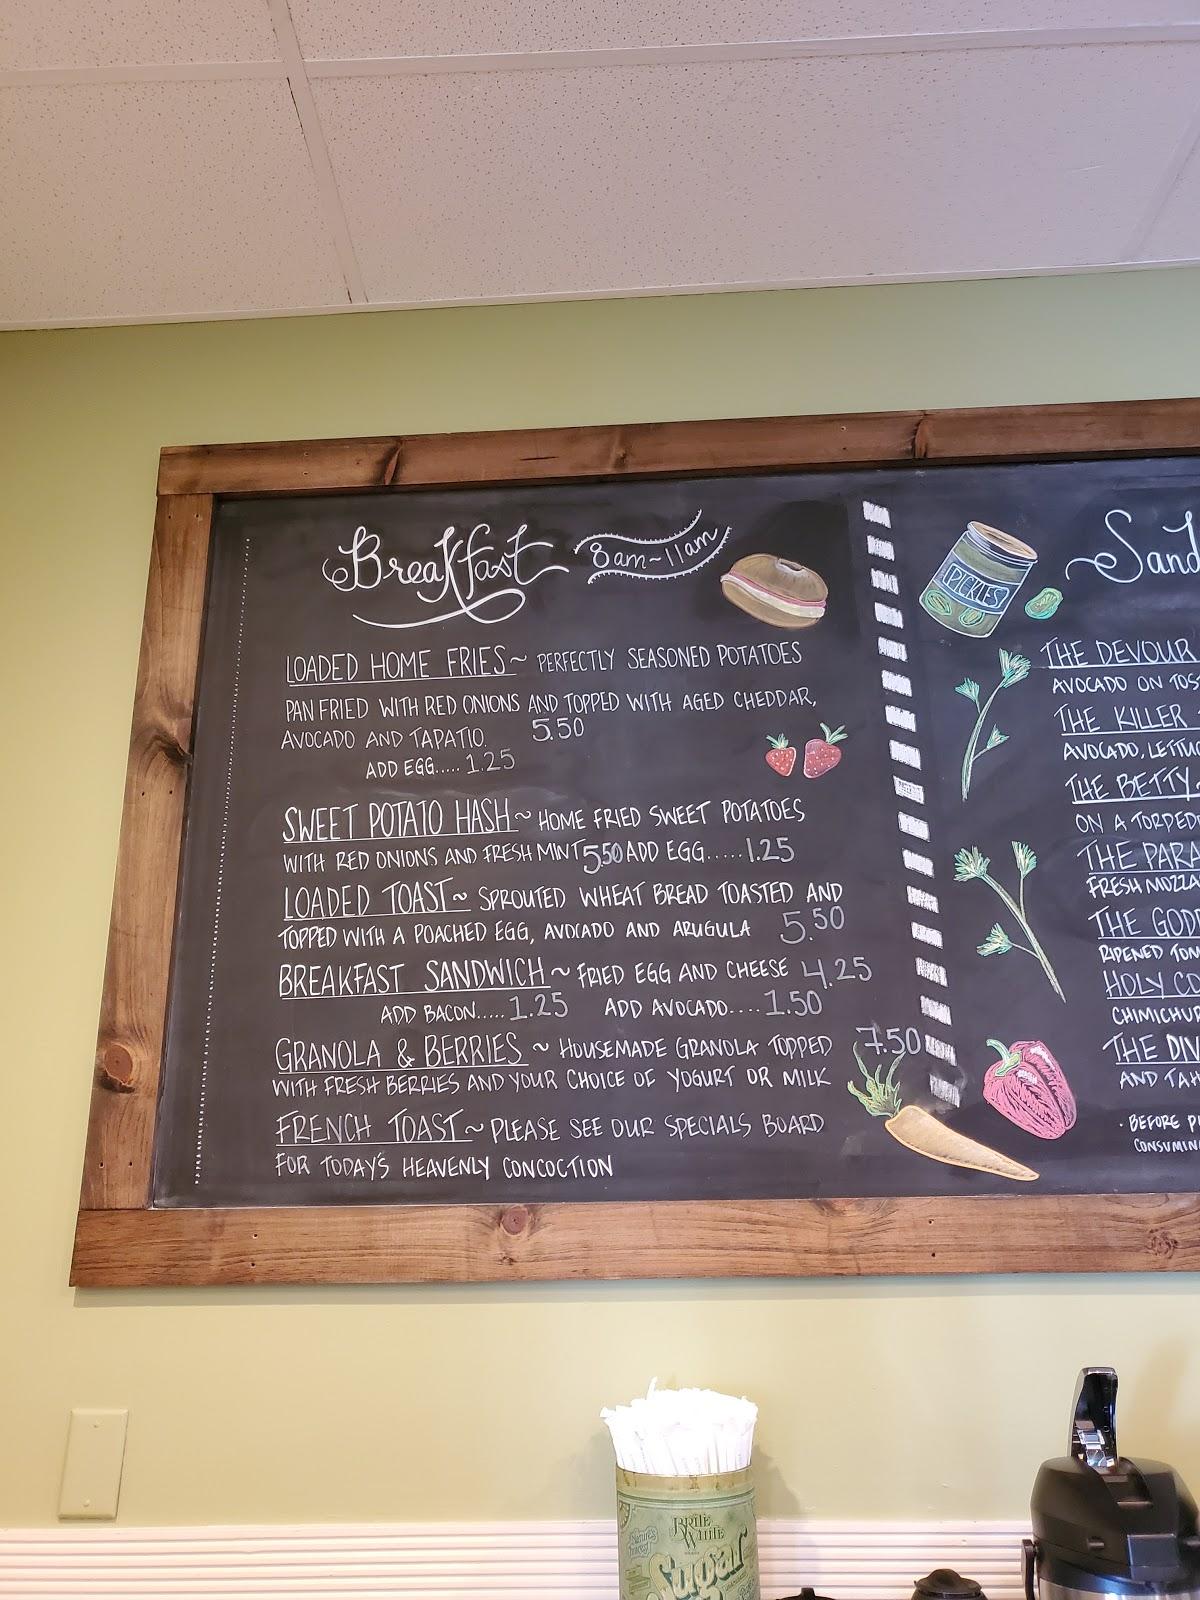 Breakfast 8am~11am
LOADED HOME FRIES~ PERFECTLY SEASONED POTATOES
PAN FRIED WITH RED ONIONS AND TOPPED WITH AGED CHEDDAR,
AVOCADO AND TAPATIO. 5.50
ADD EGG..... 1.25
SWEET POTATO HASH~ HOME FRIED SWEET POTATOES
WITH RED ONIONS AND FRESH MINT 5.50 ADD EGG.....1.25
LOADED TOAST~ SPROUTED WHEAT BREAD TOASTED AND
TOPPED WITH A POACHED EGG, AVOCADO AND ARUGULA 5.50
BREAKFAST SANDWICH~ FRIED EGG AND CHEESE 4.25
ADD BACON.....1.25 ADD AVOCADO....1.50
GRANOLA & BERRIES ~ HOUSEMADE GRANOLA TOPPED 7.50
WITH FRESH BERRIES AND YOUR CHOICE OF YOGURT OR MILK
FRENCH TOAST~ PLEASE SEE OUR SPECIALS BOARD
FOR TODAY'S HEAVENLY CONCOCTION
PICKLES
Sand
THE DEVOUR
AVOCADO ON TOS
THE KILLER
AVOCADO, LETTUC
THE BETTY~
ON A TORPEDO
THE PARA
FRESH MOZZA
THE GODD
RIPENED TOM
HOLY CO
CHIMICHUR
THE DIV
AND TAH
· BEFORE PL
CONSUMIN
BRITE
WHITE
Sugar